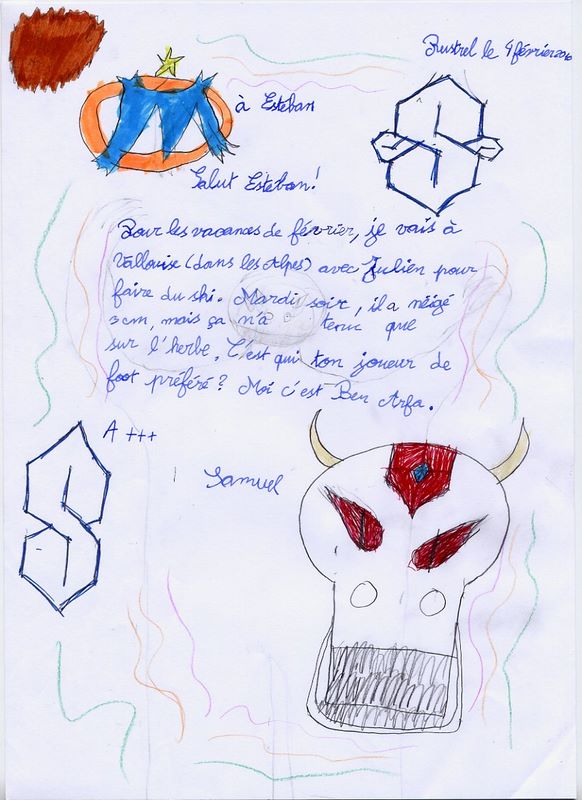 Rustrel le 4 février 2016
à Esteban
Salut Esteban!
Pour les vacances de février, je vais à
Vallouise (dans les Alpes) avec Julien pour
faire du ski. Mardi soir, il a néigé
3cm, mais ça n'a tenu que
sur l'herbe. C'est qui ton joueur de
foot préféré? Moi c'est Ben Arfa.
A +++
Samuel